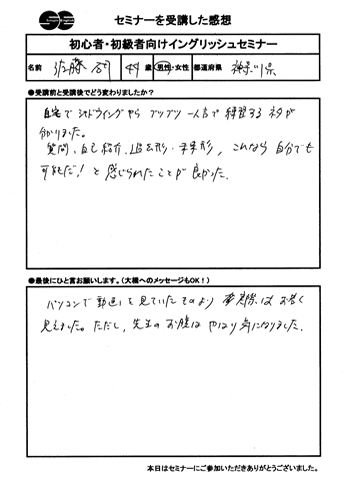 セミナーを受講した感想
初心者・初級者向けイングリッシュセミナー
名前 佐藤 49 歳 男性・女性 都道府県 神奈川県
●受講前と受講後でどう変わりましたか?
自宅でシャドウイングやら ブツブツ一人言で練習するネタが
分かりました。
質問、自己紹介、過去形・未来形、これなら自分でも
可能だ!と感じられたことが良かった。
●最後にひと言お願いします。(大橋へのメッセージもOK!)
パソコンで動画を見ていたそのより 実際はお若く
見えました。ただし、先生のお腹は やはり気になりました。
本日はセミナーにご参加いただきありがとうございました。